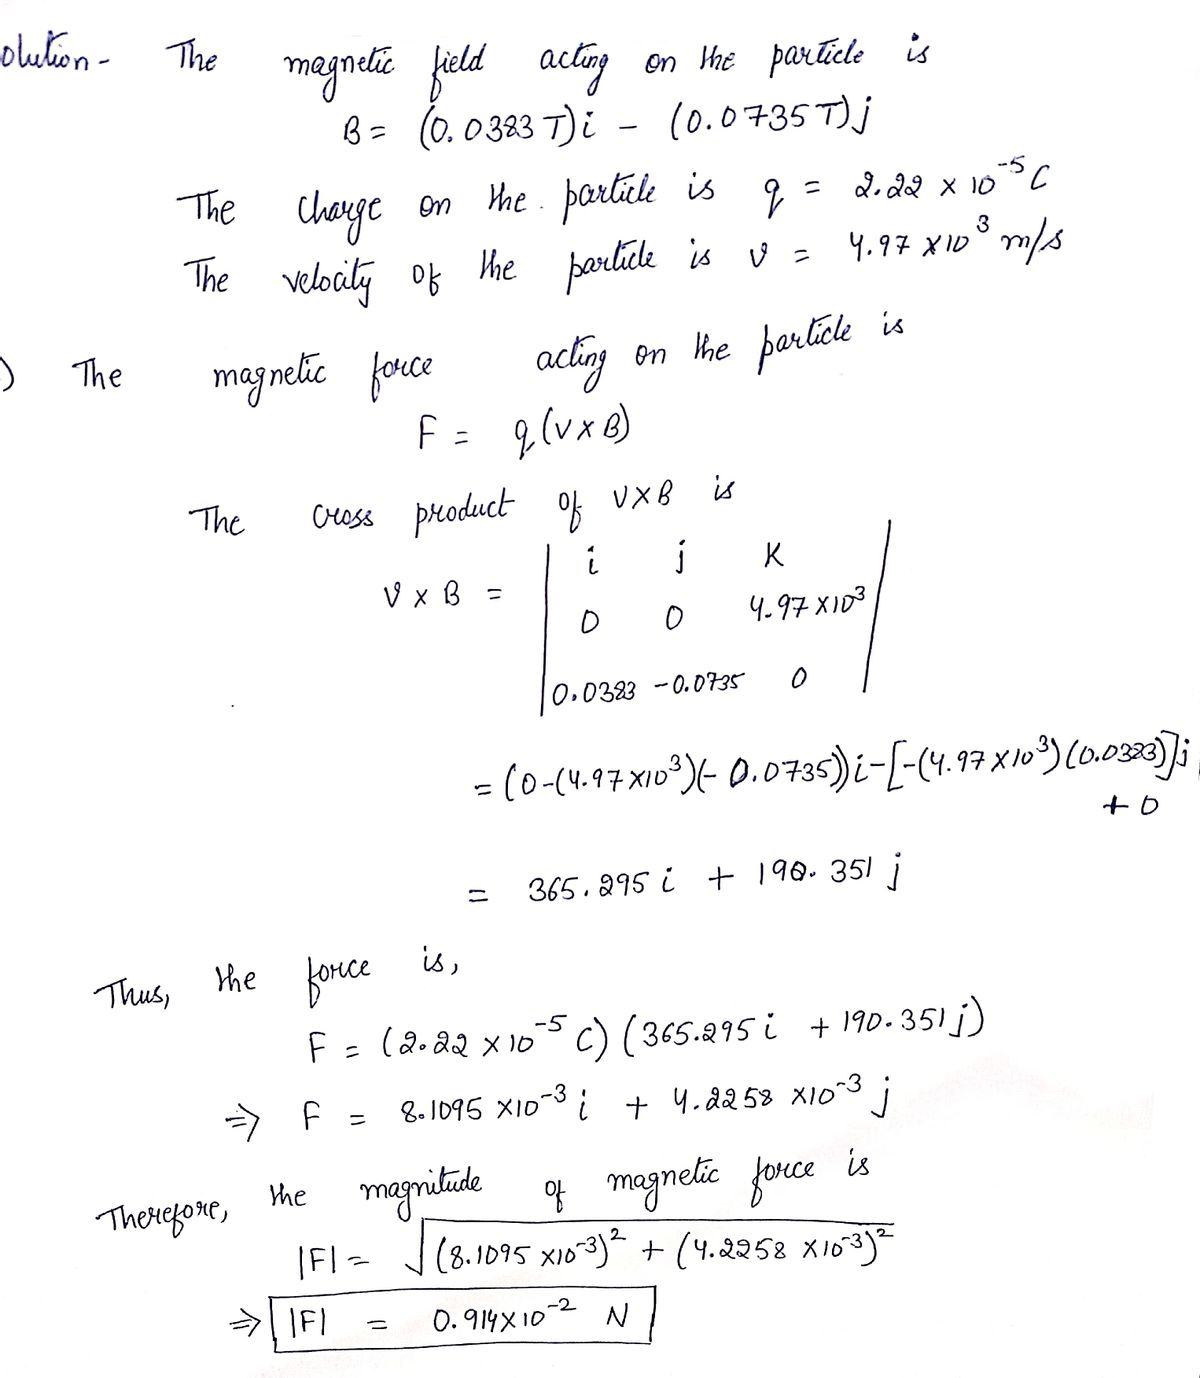 olution - The magnetic field acting on the particle is
B = (0.0383 T)i - (0.0735 T)j
The charge on the particle is q = 2.22 × 10⁻⁵ C
The velocity of the particle is v = 4.97 × 10³ m/s
) The magnetic force acting on the particle is
F = q(V × B)
The cross product of V × B is
i j K
V × B =
0 0 4.97 × 10³
0.0383 -0.0735 0
= (0-(4.97 × 10³)(-0.0735))i - [-(4.97 × 10³)(0.0383)]j
+ 0
= 365.295 i + 190.351 j
Thus, the force is,
F = (2.22 × 10⁻⁵ C) (365.295 i + 190.351 j)
⇒ F = 8.1095 × 10⁻³ i + 4.2258 × 10⁻³ j
Therefore, the magnitude of magnetic force is
|F| = √(8.1095 × 10⁻³)² + (4.2258 × 10⁻³)²
⇒ |F| = 0.914 × 10⁻² N